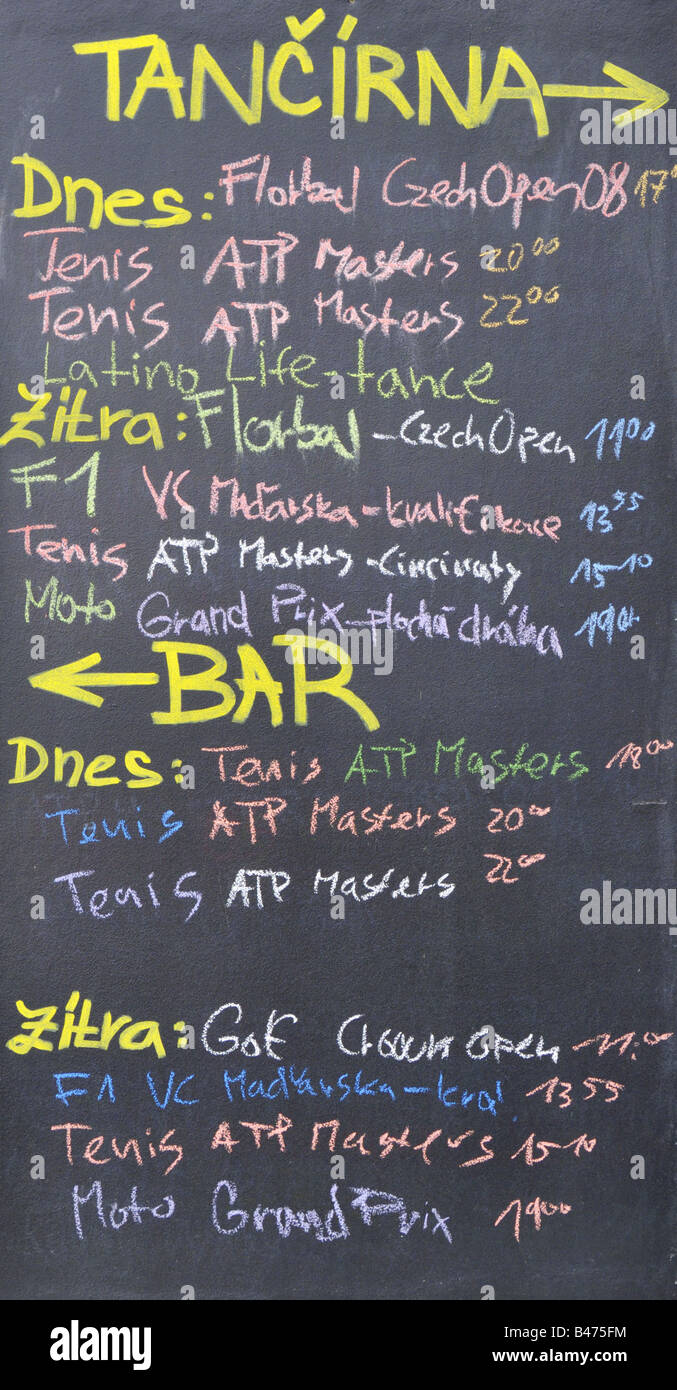 TANČÍRNA →
Dnes: Florbal Czech Open 08 17
Tenis ATP Masters 20 00
Tenis ATP Masters 22 00
Latino Life-tance
Zítra: Florbal - Czech Open 11 00
F1 VC Maďarska - kvalifikace 13 55
Tenis ATP Masters - Cincinaty 15-10
Moto Grand Prix - plochá dráha 19 00
← BAR
Dnes: Tenis ATP Masters 18 00
Tenis ATP Masters 20 00
Tenis ATP Masters 22 00
Zítra: Crown Open -11:00
F1 VC Maďarska - kval. 13 55
Tenis ATP Masters 15-10
Moto Grand Prix 19 00
alamy
a alamy stock photo
Image ID: B475FM
www.alamy.com